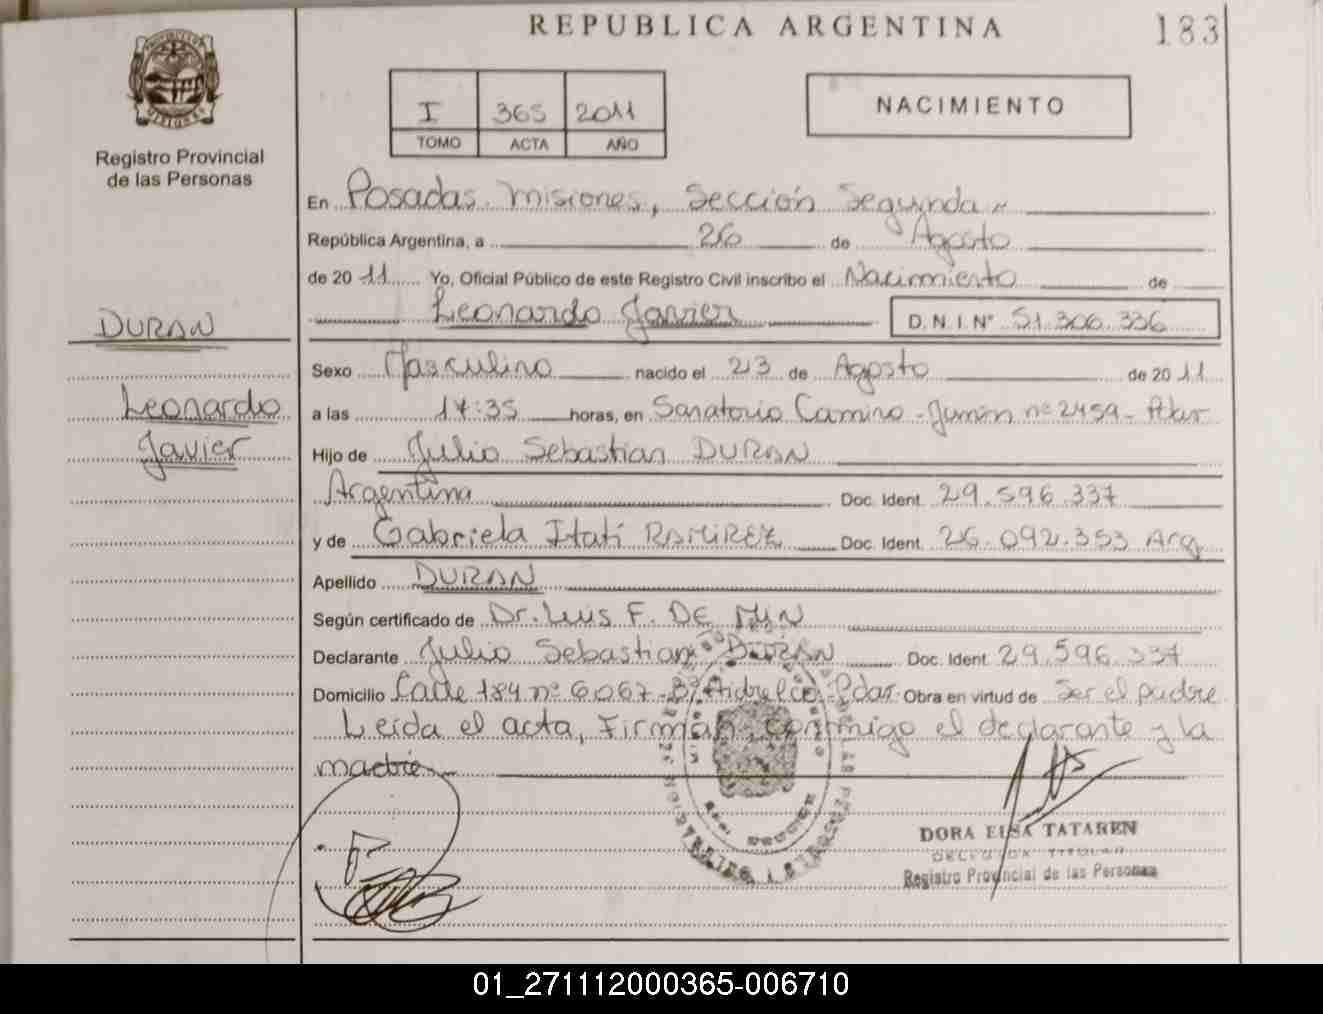 REPUBLICA ARGENTINA
183
Registro Provincial
de las Personas
I 365 2011
TOMO ACTA AÑO
NACIMIENTO
En Posadas Misiones, Sección Segunda
República Argentina, a 26 de Agosto
de 2011 Yo, Oficial Público de este Registro Civil inscribo el Nacimiento de
Leonardo Javier D.N.I.Nº 51.306.336
DURAN
Leonardo
Javier
Sexo Masculino nacido el 23 de Agosto de 2011
a las 17:35 horas, en Sanatorio Camino - Junín nº 2459 - Pdas
Hijo de Julio Sebastian DURAN
Argentina Doc. Ident. 29.596.337
y de Gabriela Itatí RAMIREZ Doc. Ident. 26.092.353 Arg
Apellido DURAN
Según certificado de Dr. Luis F. DE
Declarante Julio Sebastian DURAN Doc. Ident. 29.596.337
Domicilio Calle 184 nº 6067 Bº Pdas Obra en virtud de Ser el padre
Leída el acta, Firman conmigo el declarante y la
madre
DORA ELSA TATAREN
Registro Provincial de las Personas
01_271112000365-006710